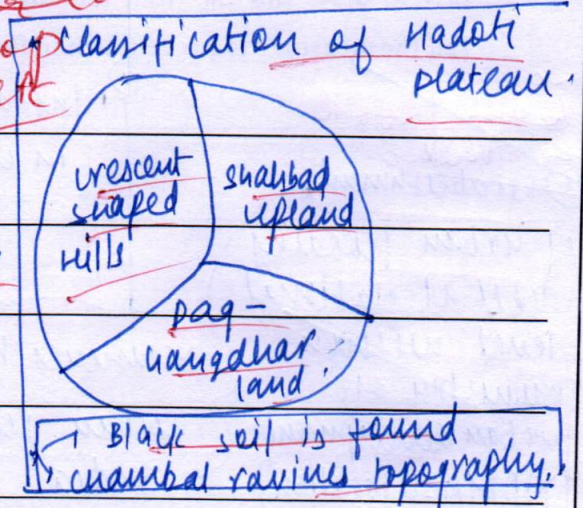 Classification of Hadoti
plateau.
crescent
shaped
Hills
Shahbad
upland
Dag-
Gangdhar
land.
Black soil is found
Chambal ravines topography.